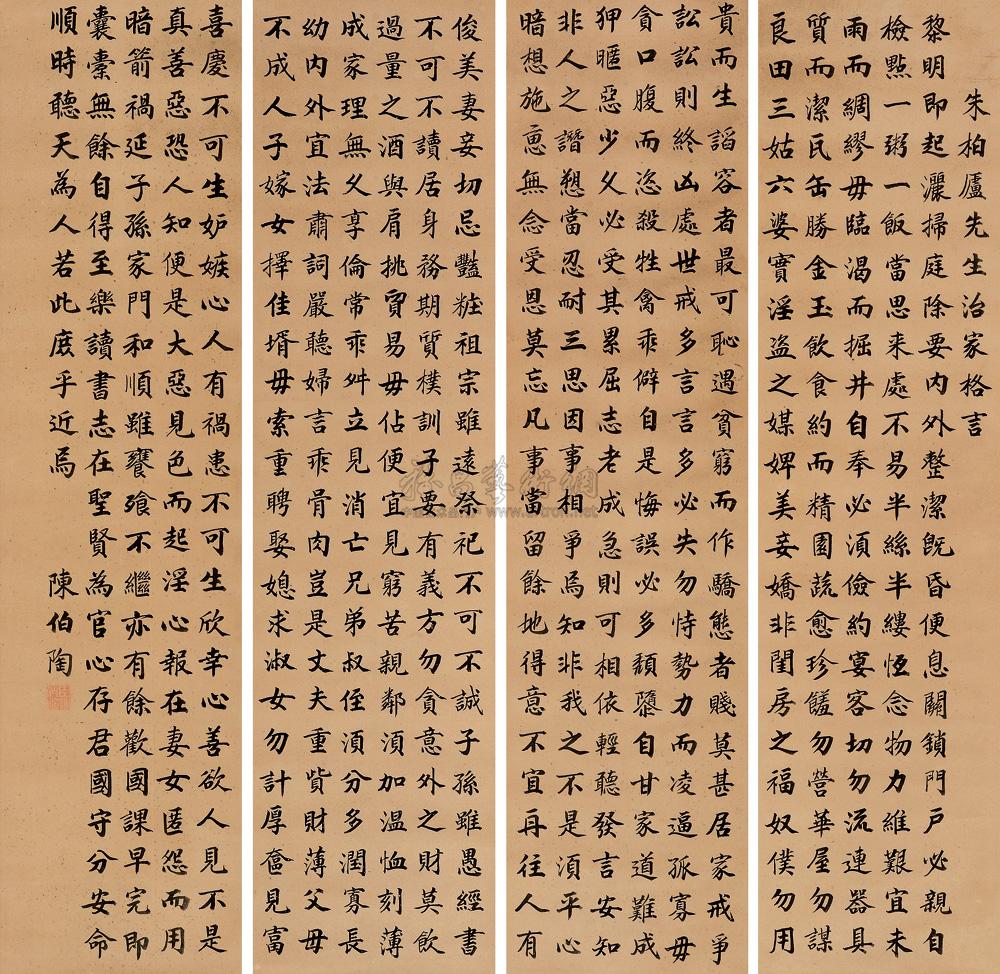 朱柏廬先生治家格言
黎明即起灑掃庭除要內外整潔既昏便息關鎖門戶必親自
檢點一粥一飯當思来處不易半絲半縷恆念物力維艱宜未
雨而綢繆毋臨渴而掘井自奉必須儉約宴客切勿流連器具
質而潔瓦缶勝金玉飲食約而精園蔬愈珍饈勿營華屋勿謀
良田三姑六婆實淫盜之媒婢美妾嬌非閨房之福奴僕勿用
俊美妻妾切忌豔粧祖宗雖遠祭祀不可不誠子孫雖愚經書
不可不讀居身務期質樸訓子要有義方勿貪意外之財莫飲
過量之酒與肩挑貿易毋佔便宜見窮苦親鄰須加温恤刻薄
成家理無久享倫常乖舛立見消亡兄弟叔侄須分多潤寡長
幼內外宜法肅詞嚴聽婦言乖骨肉豈是丈夫重貲財薄父母
不成人子嫁女擇佳壻毋索重聘娶媳求淑女勿計厚奩見富
貴而生諂容者最可恥遇貧窮而作驕態者賤莫甚居家戒爭
訟訟則終凶處世戒多言言多必失勿恃勢力而凌逼孤寡毋
貪口腹而恣殺牲禽乖僻自是悔誤必多頹隳自甘家道難成
狎暱惡少久必受其累屈志老成急則可相依輕聽發言安知
非人之譖愬當忍耐三思因事相爭焉知非我之不是須平心
暗想施惠無念受恩莫忘凡事當留餘地得意不宜再往人有
喜慶不可生妒嫉心人有禍患不可生欣幸心善欲人見不是
真善惡恐人知便是大惡見色而起淫心報在妻女匿怨而用
暗箭禍延子孫家門和順雖饔飧不繼亦有餘歡國課早完即
囊橐無餘自得至樂讀書志在聖賢為官心存君國守分安命
順時聽天為人若此庶乎近焉
陳伯陶
雅昌藝術網
www.artron.net